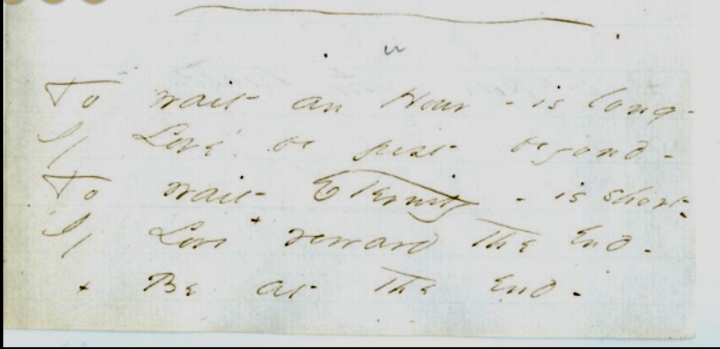 To wait an Hour - is long -
If Love be just beyond -
To wait Eternity - is short -
If Love + reward the end -
+ Be at the end -